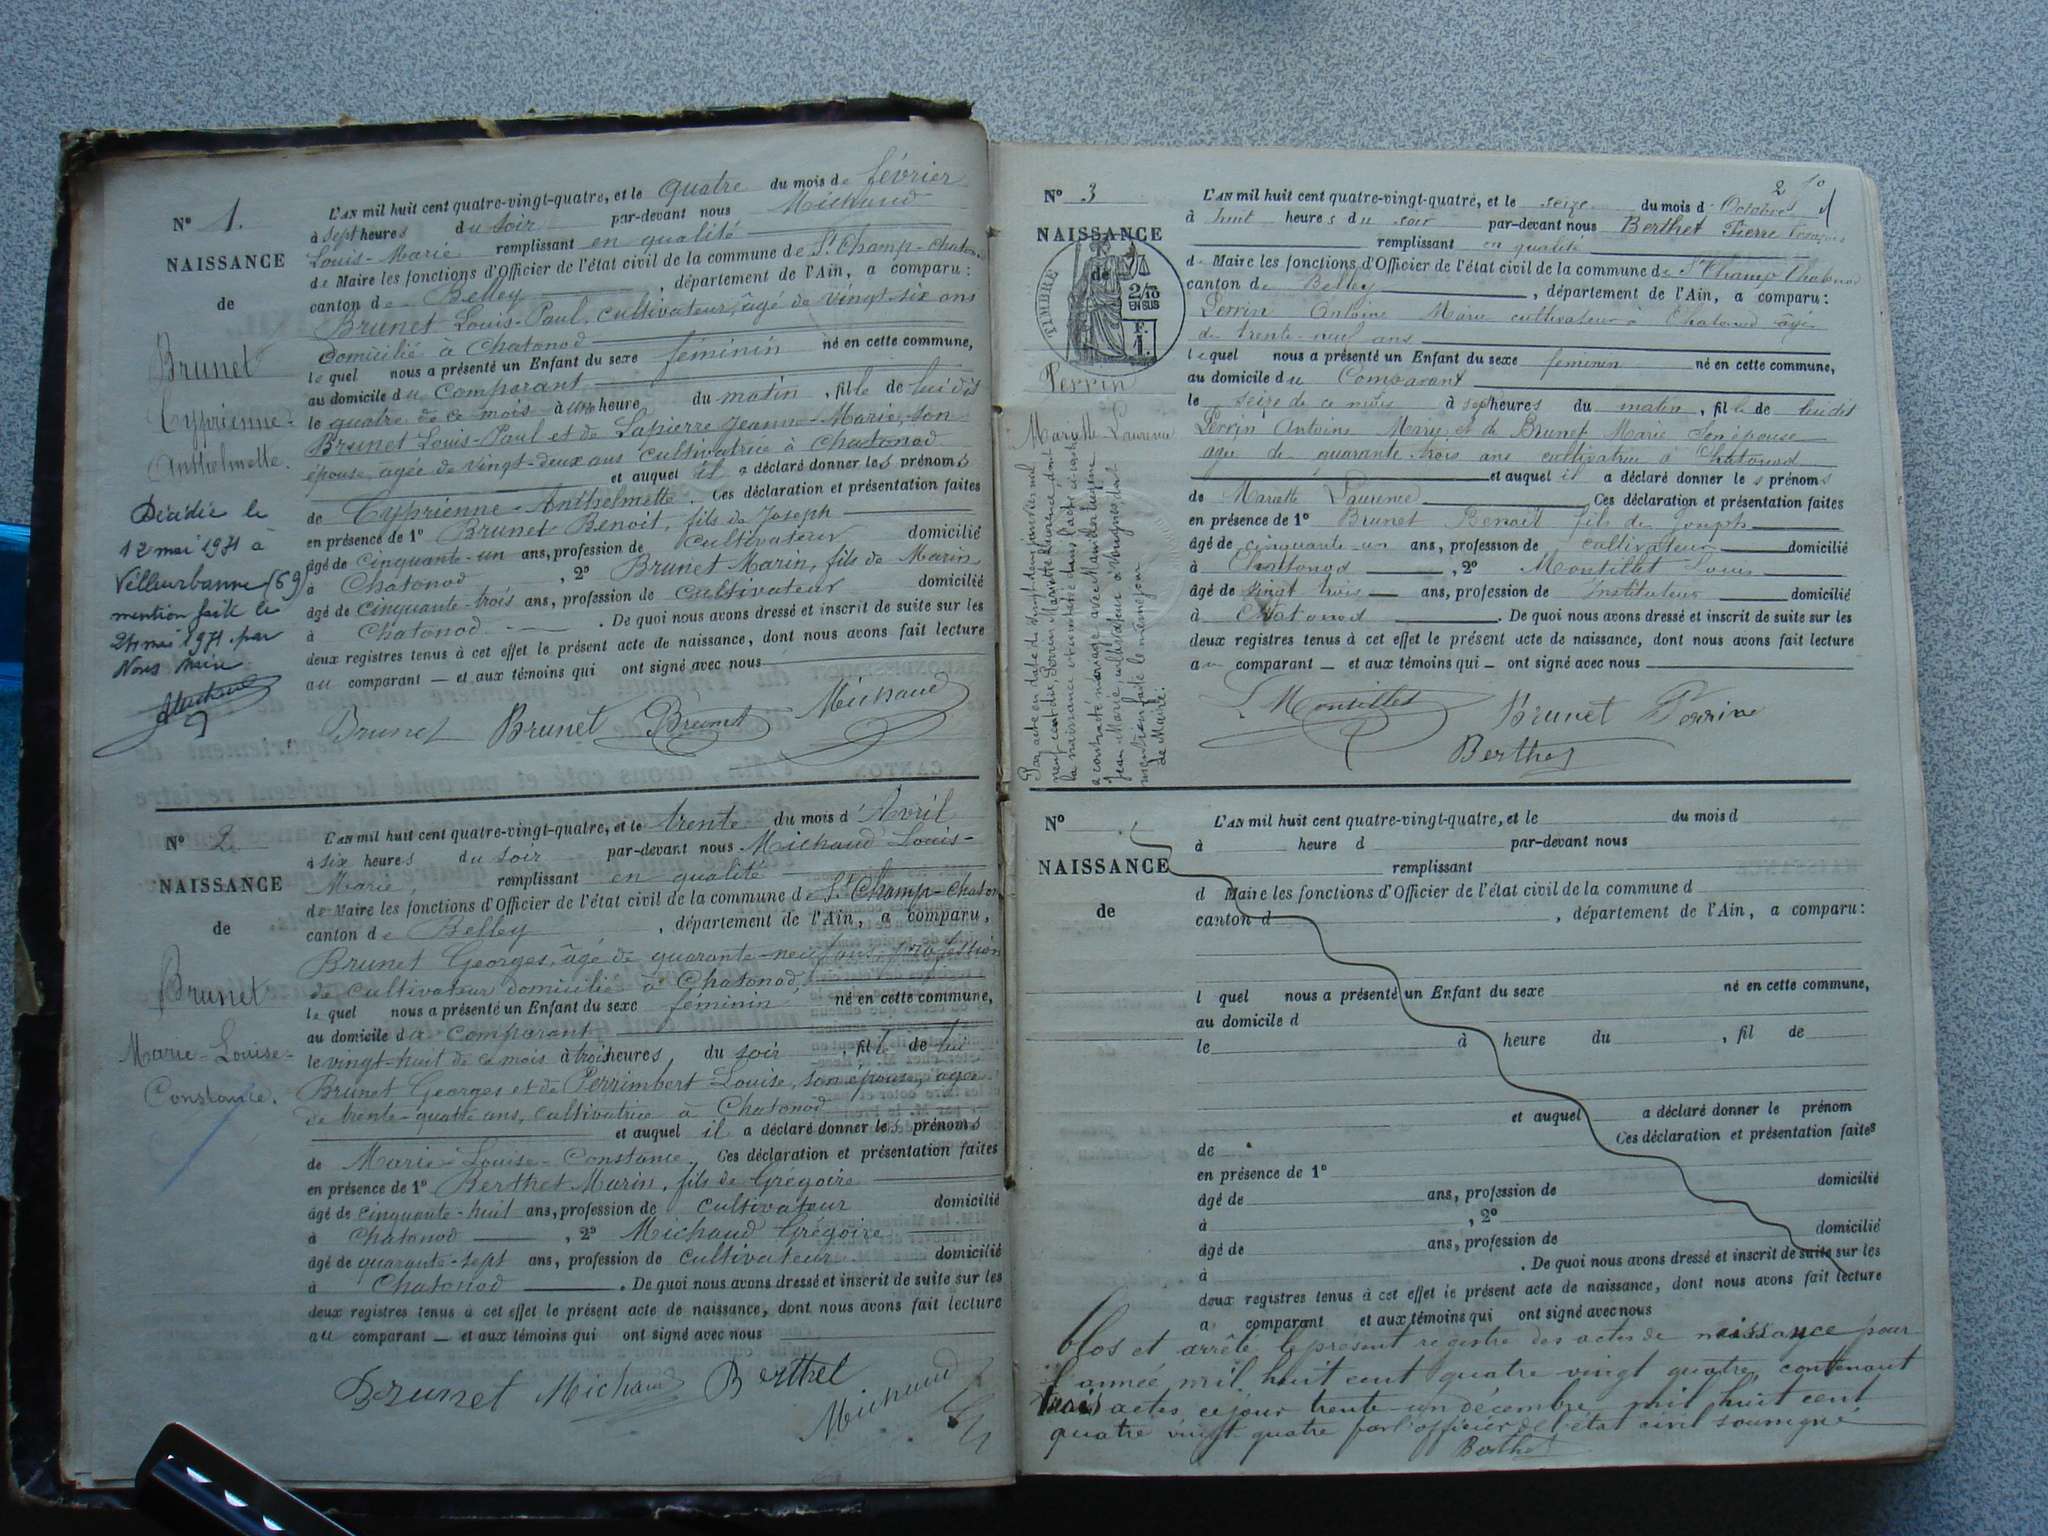 N° 1.
NAISSANCE
de
Brunet
Cyprienne-
Anthelmette.
Décédée le
12 mai 1971 à
Villeurbanne (69)
mention faite le
24 mai 1971 par
Nous Maire
L'AN mil huit cent quatre-vingt-quatre, et le quatre du mois de février
à sept heures du soir par-devant nous Michaud
Louis-Marie remplissant en qualité
de Maire les fonctions d'Officier de l'état civil de la commune de St Champ-Chaton
canton de Belley, département de l'Ain, a comparu:
Brunet Louis-Paul, cultivateur, âgé de vingt-six ans
domicilié à Chatonod
lequel nous a présenté un Enfant du sexe féminin né en cette commune,
au domicile du comparant
le quatre de ce mois à une heure du matin, fille de lui dit
Brunet Louis-Paul et de Lapierre Jeanne-Marie, son
épouse, agée de vingt-deux ans cultivatrice à Chatonod
et auquel il a déclaré donner les prénoms
de Cyprienne-Anthelmette. Ces déclaration et présentation faites
en présence de 1° Brunet Benoit, fils de Joseph
âgé de cinquante-un ans, profession de cultivateur domicilié
à Chatonod, 2° Brunet Marin, fils de Marin
âgé de cinquante-trois ans, profession de cultivateur domicilié
à Chatonod. De quoi nous avons dressé et inscrit de suite sur les
deux registres tenus à cet effet le présent acte de naissance, dont nous avons fait lecture
au comparant — et aux témoins qui ont signé avec nous
Brunet Brunet Brunet Michaud
N° 2.
NAISSANCE
de
Brunet
Marie-Louise-
Constance.
L'AN mil huit cent quatre-vingt-quatre, et le trente du mois d'Avril
à six heures du soir par-devant nous Michaud Louis-
Marie, remplissant en qualité
de Maire les fonctions d'Officier de l'état civil de la commune de St Champ-Chaton
canton de Belley, département de l'Ain, a comparu,
Brunet Georges, âgé de quarante-neuf ans profession
de cultivateur domicilié à Chatonod,
lequel nous a présenté un Enfant du sexe féminin né en cette commune,
au domicile du comparant
le vingt-huit de ce mois à trois heures, du soir, fille de lui
Brunet Georges et de Perrimbert Louise, son épouse, agée
de trente-quatre ans, cultivatrice à Chatonod
et auquel il a déclaré donner les prénoms
de Marie-Louise-Constance. Ces déclaration et présentation faites
en présence de 1° Berthet Marin, fils de Grégoire
âgé de cinquante-huit ans, profession de cultivateur domicilié
à Chatonod, 2° Michaud Grégoire
âgé de quarante-sept ans, profession de cultivateur. domicilié
à Chatonod. De quoi nous avons dressé et inscrit de suite sur les
deux registres tenus à cet effet le présent acte de naissance, dont nous avons fait lecture
au comparant — et aux témoins qui ont signé avec nous
Brunet Michaud Berthet
Michaud
2
N° 3
NAISSANCE
de
TIMBRE
2/10
EN SUS
F.
1.
Perrin
Mariette Laurence
L'AN mil huit cent quatre-vingt-quatre, et le seize du mois d'Octobre
à huit heures du soir par-devant nous Berthet Pierre François
remplissant en qualité
de Maire les fonctions d'Officier de l'état civil de la commune de St Champ Chatonod
canton de Belley, département de l'Ain, a comparu:
Perrin Antoine Marie cultivateur à Chatonod âgé
de trente-neuf ans
lequel nous a présenté un Enfant du sexe féminin né en cette commune,
au domicile du Comparant
le seize de ce mois à sept heures du matin, fille de lui dit
Perrin Antoine Marie et de Brunet Marie son épouse
agée de quarante trois ans cultivatrice à Chatonod
et auquel il a déclaré donner les prénoms
de Mariette Laurence Ces déclaration et présentation faites
en présence de 1° Brunet Benoit fils de Joseph
âgé de cinquante un ans, profession de cultivateur domicilié
à Chatonod, 2° Montillet Louis
âgé de vingt trois ans, profession de Instituteur domicilié
à Chatonod. De quoi nous avons dressé et inscrit de suite sur les
deux registres tenus à cet effet le présent acte de naissance, dont nous avons fait lecture
au comparant — et aux témoins qui — ont signé avec nous
L Montillet Brunet Perrin
Berthet
Par acte en date du vingt deux janvier mil
neuf cent dix, Perrin Mariette Laurence, dont
la naissance est énoncée dans l'acte ci-contre
a contracté mariage avec
Jean Marie, cultivateur à Vongnes, dont
mention faite le même jour
Le Maire:
N°
NAISSANCE
de
L'AN mil huit cent quatre-vingt-quatre, et le du mois d
à heure d par-devant nous
remplissant
d Maire les fonctions d'Officier de l'état civil de la commune d
canton d, département de l'Ain, a comparu:
l quel nous a présenté un Enfant du sexe né en cette commune,
au domicile d
le à heure du, fil de
et auquel a déclaré donner le prénom
de Ces déclaration et présentation faites
en présence de 1°
âgé de ans, profession de domicilié
à, 2°
âgé de ans, profession de domicilié
à. De quoi nous avons dressé et inscrit de suite sur les
deux registres tenus à cet effet le présent acte de naissance, dont nous avons fait lecture
a comparant et aux témoins qui ont signé avec nous
Clos et arrêté le présent registre des actes de naissance pour
l'année mil huit cent quatre vingt quatre contenant
trois actes ce jour trente-un décembre mil huit cent
quatre vingt quatre par l'officier de l'état civil soussigné
Berthet